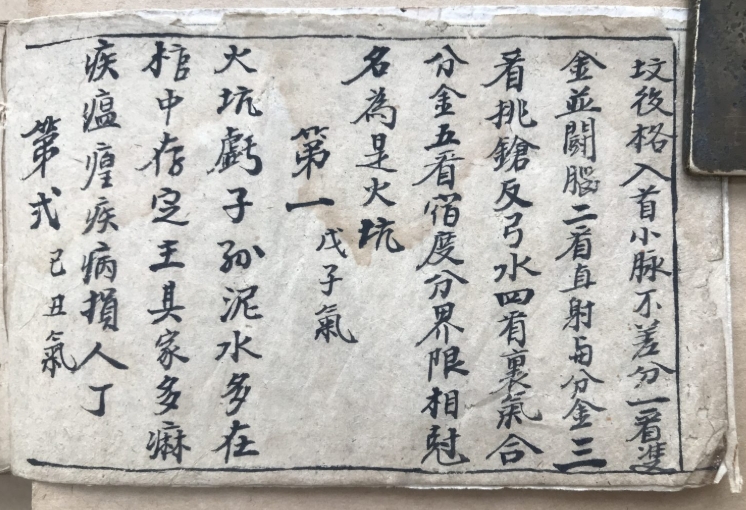 坟後格入首小脉不差分一看双
金並鬪腦二看直射与分金三
看挑鎗反弓水四看裏氣合
分金五看宿度分界限相尅
名為是火坑
第一 戊子氣
火坑虧子孫泥水多在
棺中存定主其家多麻
疾瘟瘟疾病損人丁
第弍 己丑氣